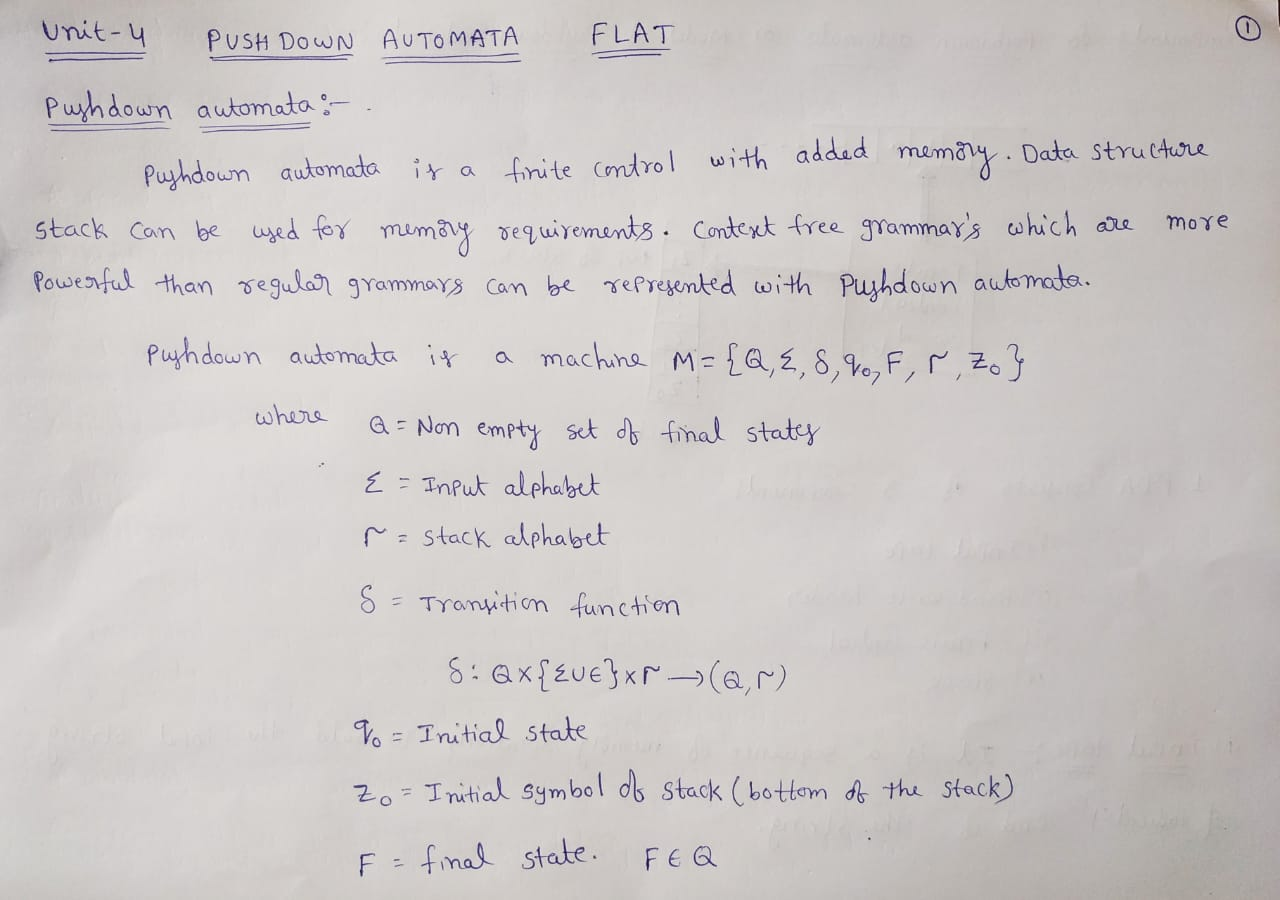 Unit-4 PUSH DOWN AUTOMATA FLAT ①
Pushdown automata :-
Pushdown automata is a finite control with added memory. Data structure
stack can be used for memory requirements. Context free grammar's which are more
Powerful than regular grammars can be represented with Pushdown automata.
Pushdown automata is a machine M = {Q, Σ, δ, q₀, F, Γ, Z₀}
where Q = Non empty set of final states
Σ = Input alphabet
Γ = stack alphabet
δ = Transition function
δ: Q×{Σ∪ϵ}×Γ → (Q, Γ)
q₀ = Initial state
Z₀ = Initial symbol of stack (bottom of the stack)
F = final state. F ∈ Q